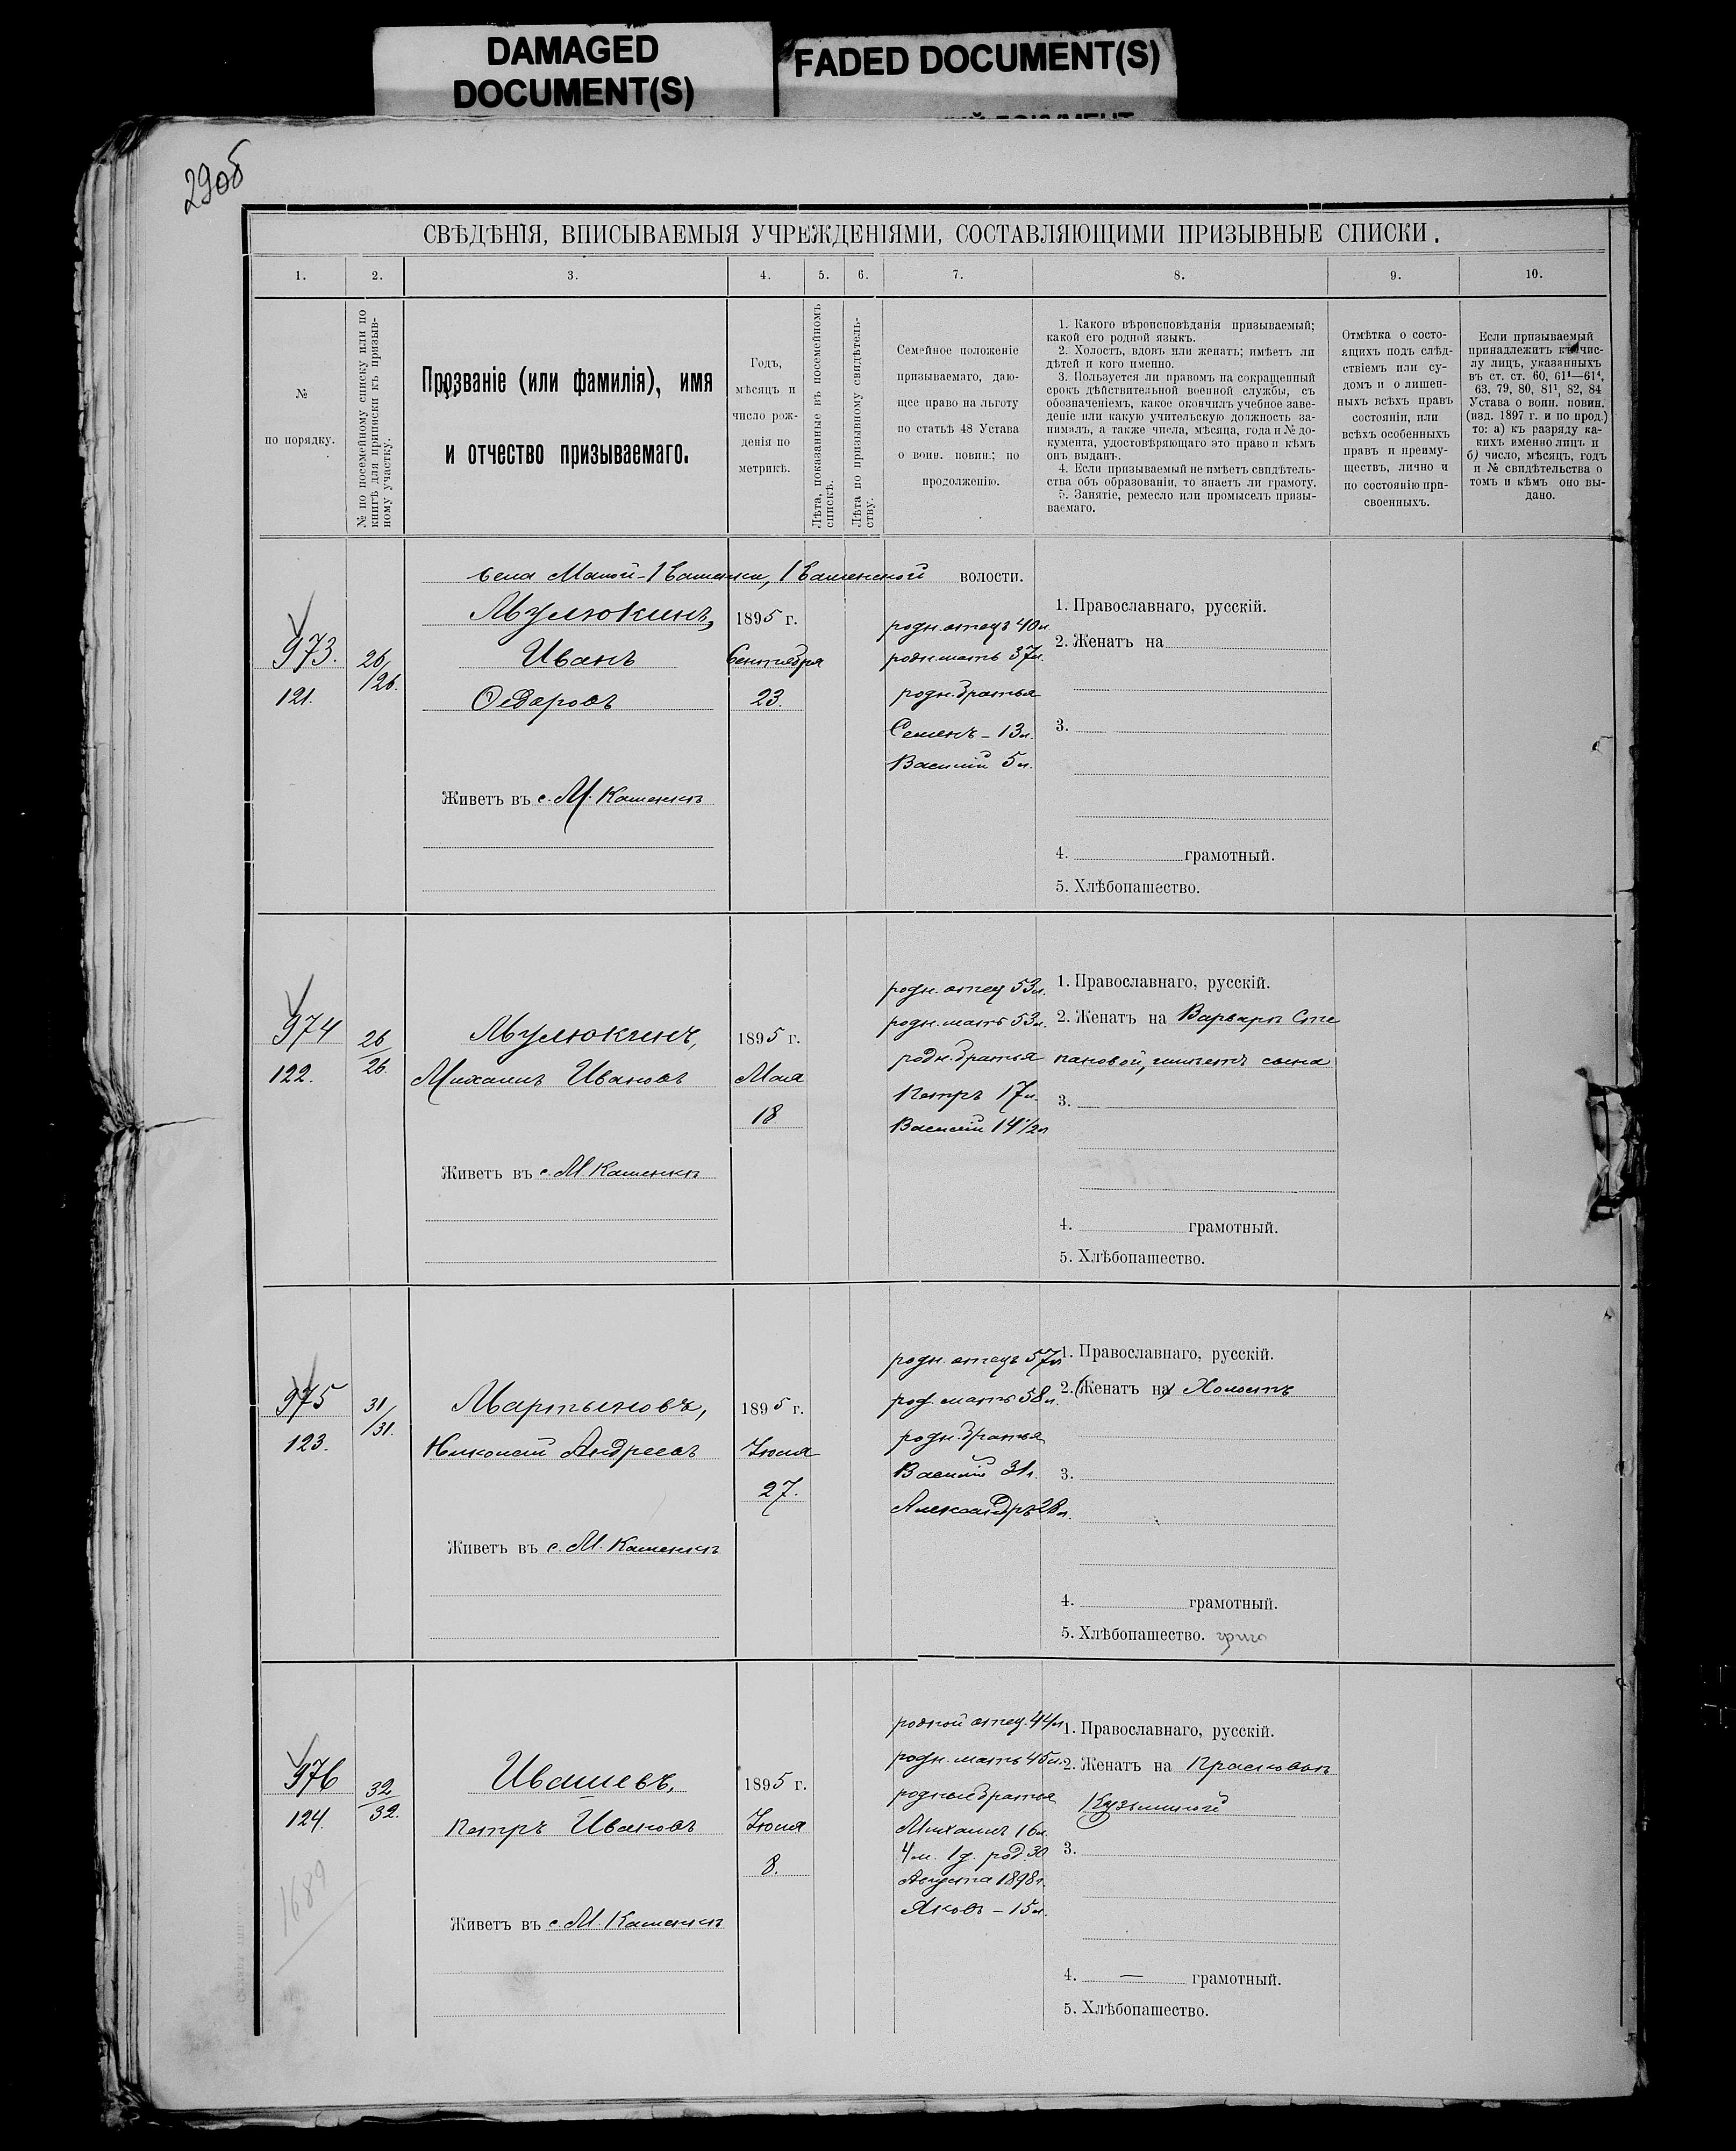 DAMAGED
DOCUMENT(S)
FADED DOCUMENT(S)
29об
СВѢДѢНІЯ, ВПИСЫВАЕМЫЯ УЧРЕЖДЕНІЯМИ, СОСТАВЛЯЮЩИМИ ПРИЗЫВНЫЕ СПИСКИ.
1. 2. 3. 4. 5. 6. 7. 8. 9. 10.
№
по порядку.
№ по посемейному списку или по
книгѣ для приписки къ призыв-
ному участку.
Прозваніе (или фамилія), имя
и отчество призываемаго.
Годъ,
мѣсяцъ и
число рож-
денія по
метрикѣ.
Лѣта, показанные въ посемейномъ
спискѣ.
Лѣта по призывному свидѣтель-
ству.
Семейное положеніе
призываемаго, даю-
щее право на льготу
по статьѣ 48 Устава
о воин. повин.; по
продолженію.
1. Какого вѣроисповѣданія призываемый;
какой его родной языкъ.
2. Холостъ, вдовъ или женатъ; имѣетъ ли
дѣтей и кого именно.
3. Пользуется ли правомъ на сокращенный
срокъ дѣйствительной военной службы, съ
обозначеніемъ, какое окончилъ учебное заве-
деніе или какую учительскую должность за-
нималъ, а также числа, мѣсяца, года и № до-
кумента, удостовѣряющаго это право и кѣмъ
онъ выданъ.
4. Если призываемый не имѣетъ свидѣтель-
ства объ образованіи, то знаетъ ли грамоту.
5. Занятіе, ремесло или промыселъ призы-
ваемаго.
Отмѣтка о состо-
ящихъ подъ слѣд-
ствіемъ или су-
домъ и о лишен-
ныхъ всѣхъ правъ
состоянія, или
всѣхъ особенныхъ
правъ и преиму-
ществъ, лично и
по состоянію при-
своенныхъ.
Если призываемый
принадлежитъ къ чис-
лу лицъ, указанныхъ
въ ст. ст. 60, 61¹—61⁴,
63, 79, 80, 81¹, 82, 84
Устава о воин. повин.
(изд. 1897 г. и по прод.)
то: а) къ разряду ка-
кихъ именно лицъ и
б) число, мѣсяцъ, годъ
и № свидѣтельства о
томъ и кѣмъ оно вы-
дано.
села Малой-Каменки, Каменской волости.
973.
121.
26/126.
Мулюкинъ,
Иванъ
Ѳедоровъ
Живетъ въ с. М. Каменкѣ
1895 г.
Сентября
23.
родн. отецъ 40л.
родн. мать 37л.
родн. братья
Семенъ - 13л.
Василій 5л.
1. Православнаго, русскій.
2. Женатъ на
3.
4. грамотный.
5. Хлѣбопашество.
974
122.
26
26.
Мулюкинъ,
Михаилъ Ивановъ
Живетъ въ с. М. Каменкѣ
1895 г.
Мая
18
родн. отец 53л.
родн. мать 53л.
родн. братья
Петръ 17л.
Василій 14½л
1. Православнаго, русскій.
2. Женатъ на Варварѣ Сте
пановой, имѣетъ сына
3.
4. грамотный.
5. Хлѣбопашество.
975
123.
31/31.
Мартыновъ,
Николай Андреевъ
Живетъ въ с. М. Каменкѣ
1895 г.
Іюля
27.
родн. отецъ 57л
род. мать 58л.
родн. братья
Василій 31л.
Александръ 28л.
1. Православнаго, русскій.
2. (Женатъ на) Холостъ
3.
4. грамотный.
5. Хлѣбопашество.
976
124.
1689
32
32.
Ивашевъ,
Петръ Ивановъ
Живетъ въ с. М. Каменкѣ
1895 г.
Іюля
8.
родной отец. 44л
родн. мать 45л.
родные братья
Михаилъ 16л.
4м. 1д. род. 30
Августа 1898г.
Яковъ - 15л.
1. Православнаго, русскій.
2. Женатъ на Прасковьѣ
Кузьминой
3.
4. — грамотный.
5. Хлѣбопашество.